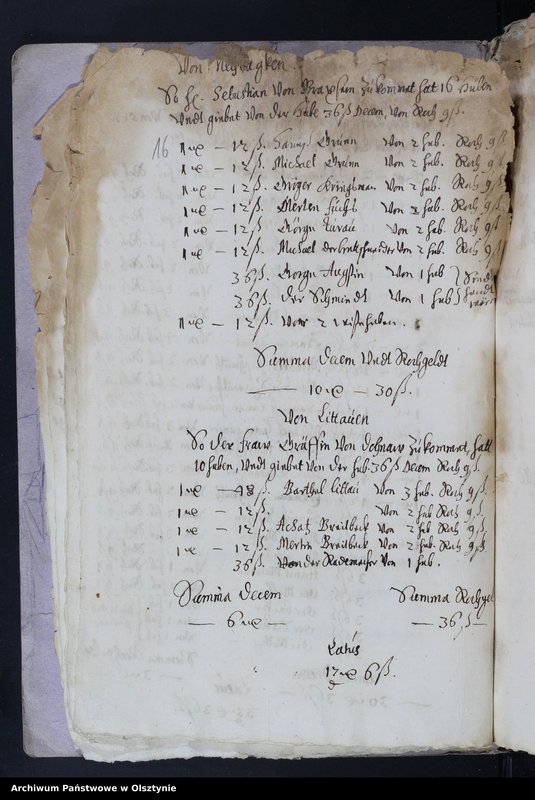 Von
So H. Sebastian Von zukommet hat 16 Huben
Vndt giebet Von der Hube 36 ß Decem, Von Roch 9 ß.
16 1 mr — 12 ß. Hannß Grunn Von 2 hub. Roch 9 ß
1 mr — 12 ß. Michael Grunn Von 2 hub. Roch 9 ß
1 mr — 12 ß. Greger Von 2 hub. Roch 9 ß
1 mr — 12 ß. Merten Fuchs Von 2 hub. Roch 9 ß
1 mr — 12 ß. Görgn Von 2 hub. Roch 9 ß
1 mr — 12 ß. Michael der Von 2 hub. Roch 9 ß
36 ß. Görgn Augstin Von 1 hub
36 ß. der Schmiedt Von 1 hub
1 mr — 12 ß. Von 2
Summa Decem Vndt Rochgeldt
— 10 mr — 30 ß.
Von Littauen
So der fraw Gräffin Von Dohnaw zukommet, hatt
10 huben, Vndt giebet Von der hub. 36 ß Decem Roch 9 ß.
1 mr — 48 ß. Barthel Littau Von 3 hub. Roch 9 ß.
1 mr — 12 ß. Von 2 hub Roch 9 ß.
1 mr — 12 ß. Achatz Breitbeck Von 2 hub Roch 9 ß.
1 mr — 12 ß. Merten Breitbeck Von 2 hub. Roch 9 ß
36 ß. Von der Rademacher Von 1 hub.
Summa Decem Summa Rochgel
— 6 mr — — 36 ß —
Latus
17 mr 6 ß.
Archiwum Państwowe w Olsztynie